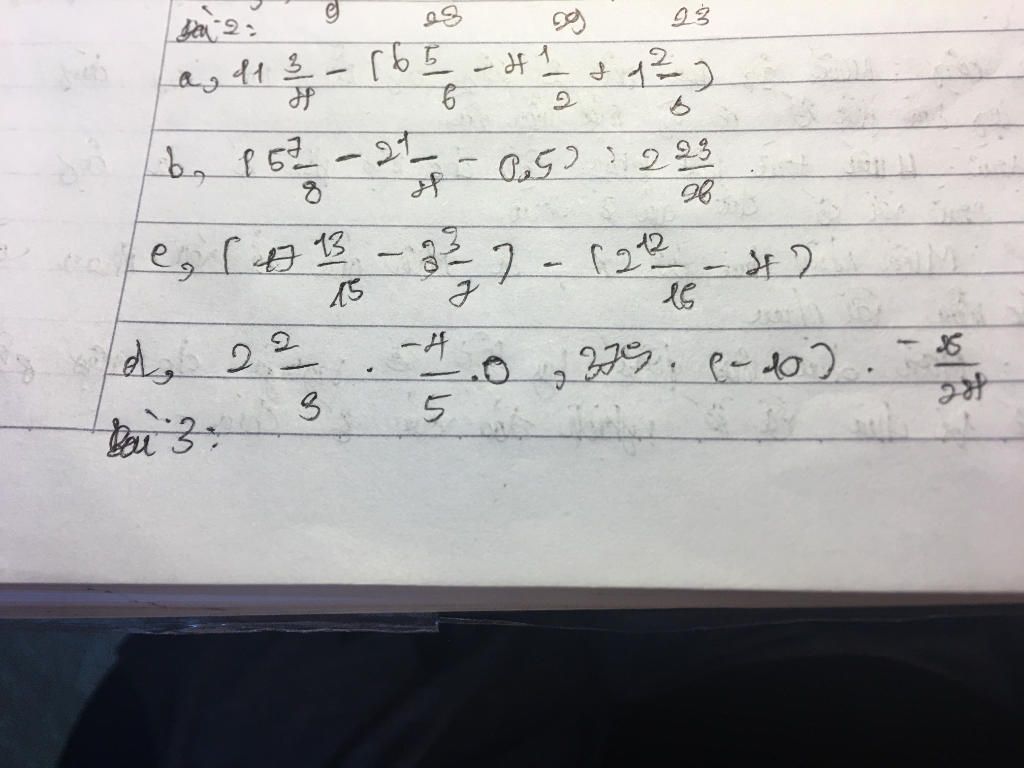 9 28 29 23
Bài 2:
a, 11 3/4 - (6 5/6 - 4 1/2 + 1 2/3)
b, (5 7/8 - 2 1/4 - 0,5) : 2 23/26
c, (17 13/15 - 3 3/7) - (2 12/15 - 4)
d, 2 2/3 . -4/5 . 0,375 . (-10) . -15/24
Bài 3: